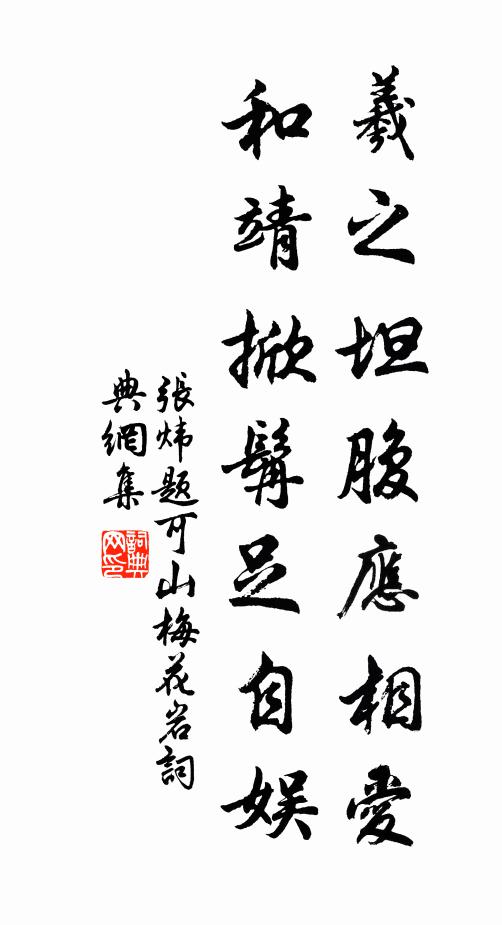 羲之坦腹應相愛
和靖掀髯足自娱
張炜题可山梅花岩詞
典網集
詞典
网印